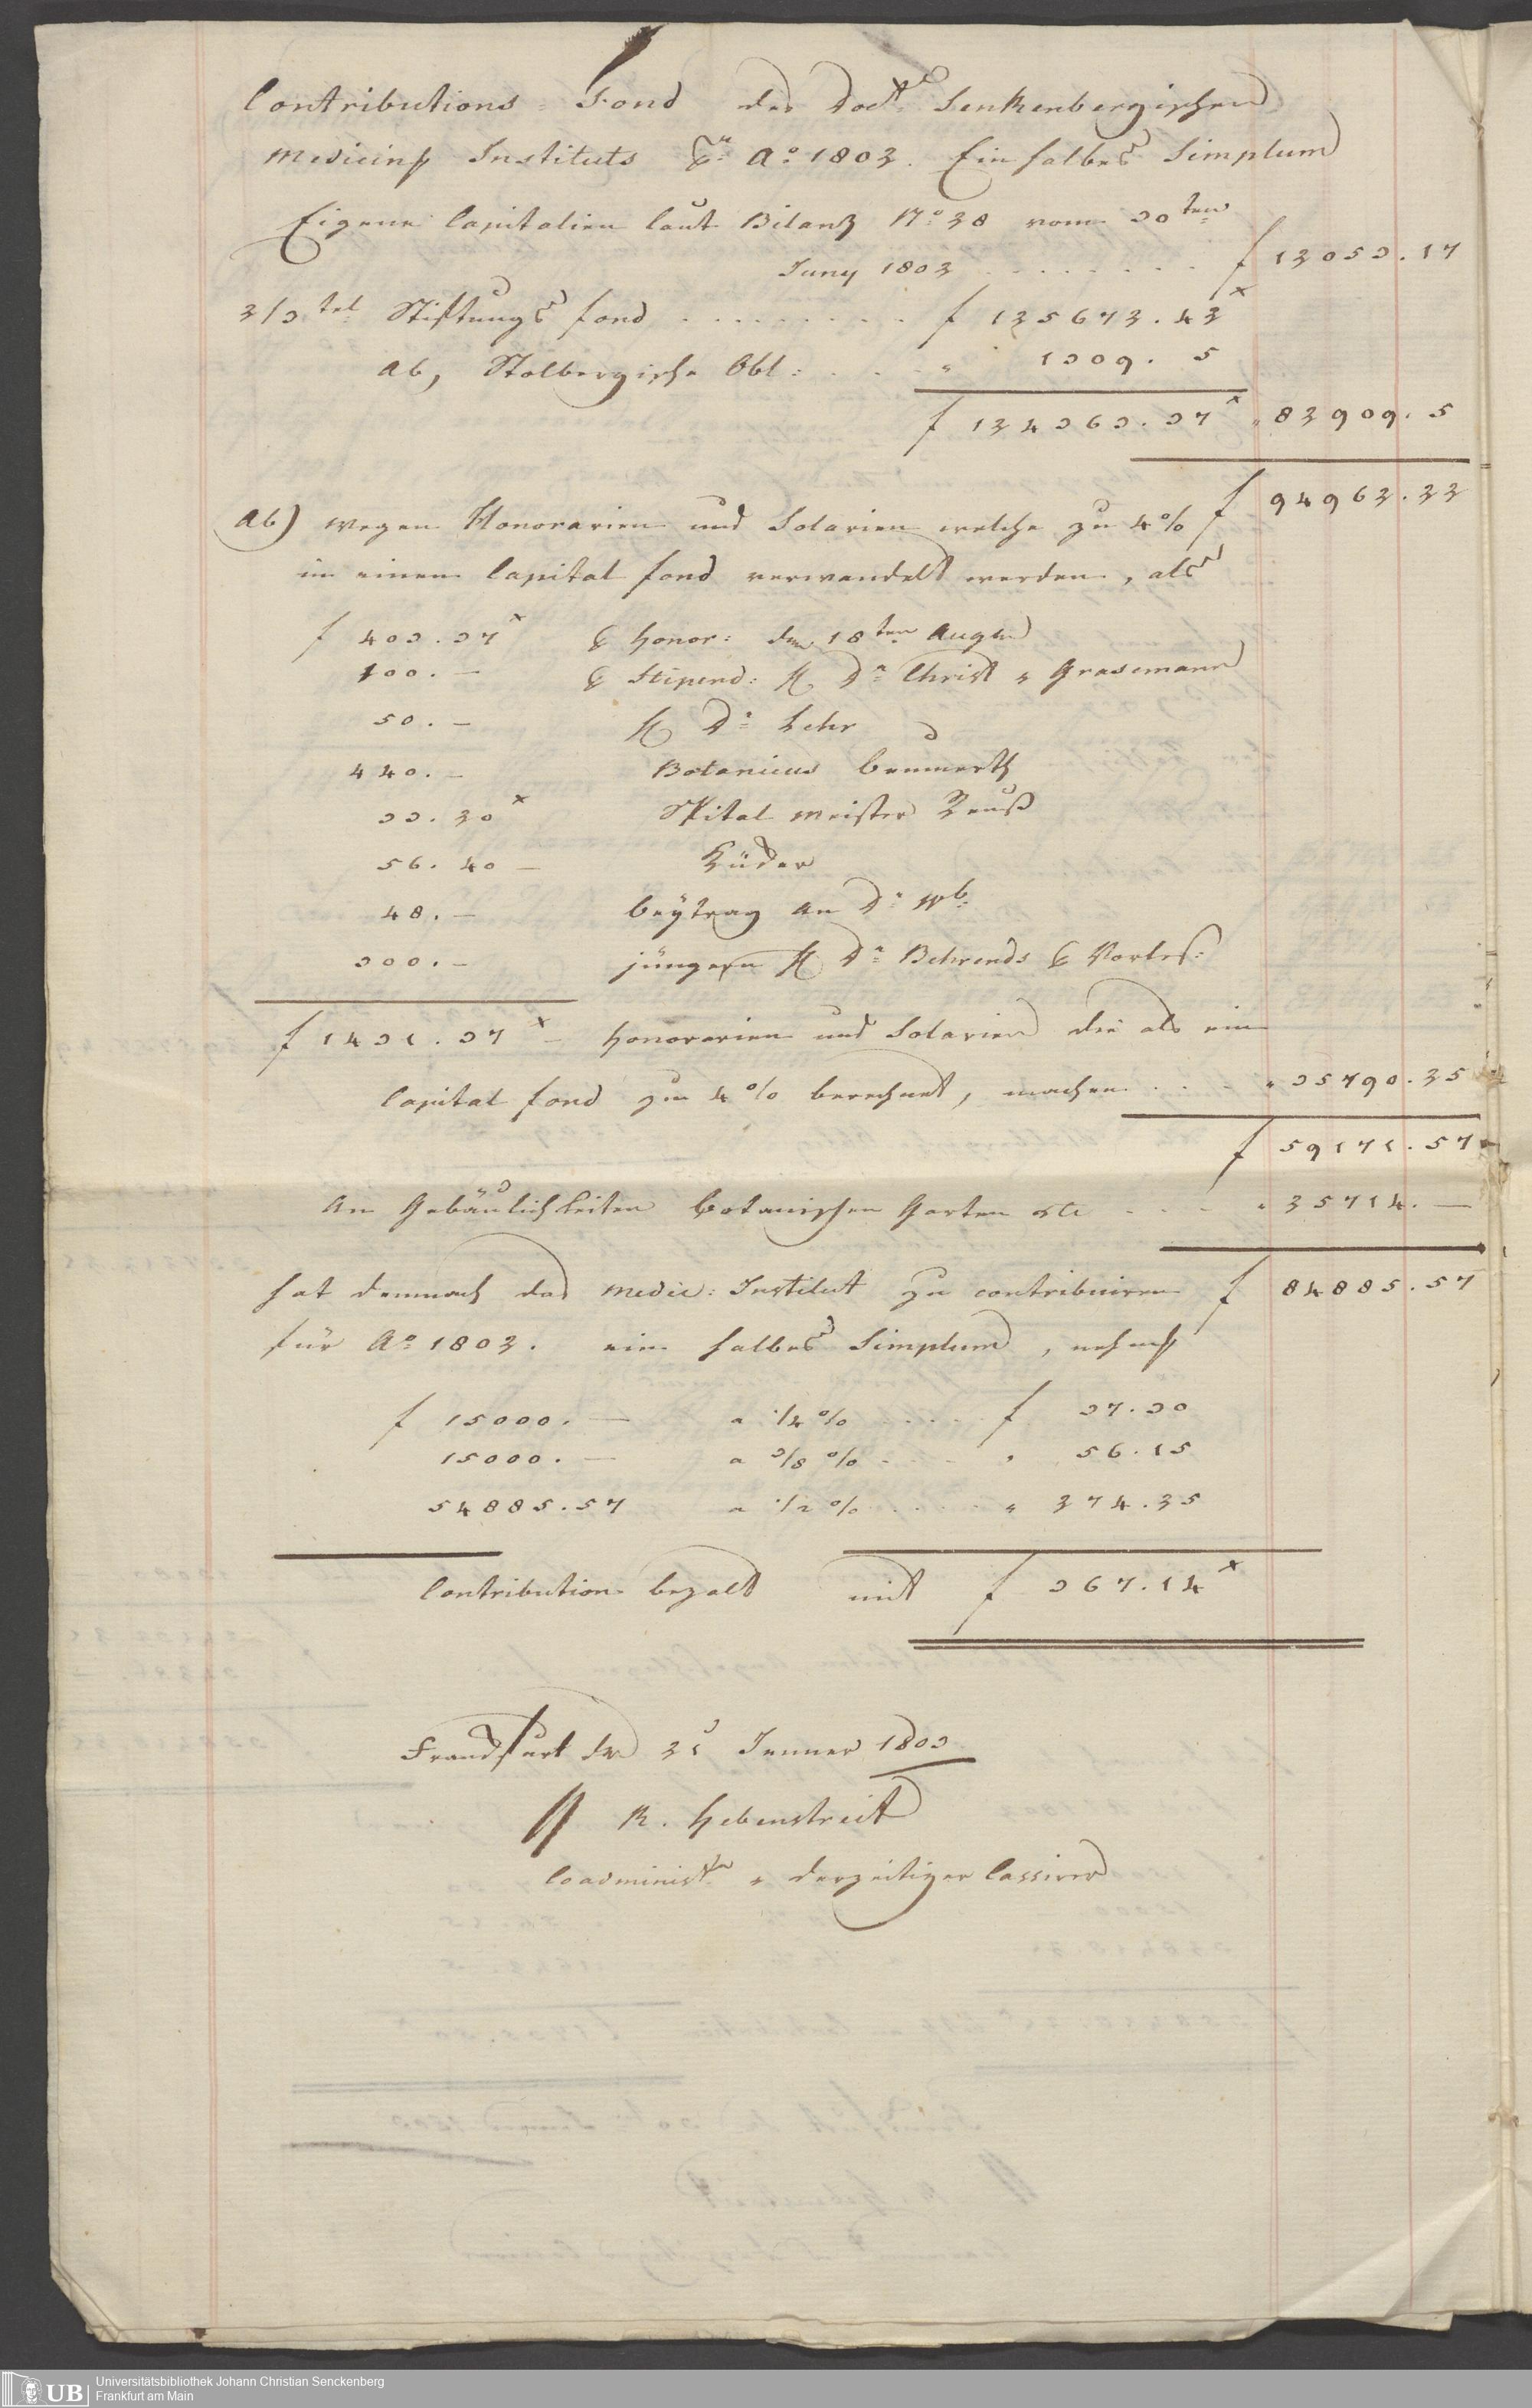 Contributions-Fond des Doct. Senkenbergischen
Medicinß Instituts pr Ao 1802. Ein halbes Simplum
Eigene Capitalien laut Bilanz No 28 vom 30ten
Juny 1802 . . . . . . . . f 12053.17
2/3tel Stiftungs fond . . . . . . . . . f 125672.42x
Ab, Stolbergische Obl: . . . " 1309. 5
f 124363.37x " 82909. 5
f 94962.22
Ab) wegen Honorarien und Salarien welche zu 4%
in einem Capital fond verwandelt werden, als
f 403.37x p Honor: den 18ten Augst
100. – p Stipend: H Dr Christ & Grasemann
50. – H Dr Lehr
440. – Botanicus
33.20x Spital meister Reuß
56.40 –
48. – beÿtrag an Dr Wb.
300. – jüngern H Dr Behrends p Vorles:
f 1431.37x – honorarien und Salarien die als ein
Capital fond zu 4% berechnet, machen . . . " 35790.25
f 59171.57
An Gebäulichkeiten botanischen Garten etc . . . . " 25714. —
hat demnach das medic: Institut zu contribuiren f 84885.57
für Ao 1802. ein halbes Simplum, nehml
f 15000. — a 1/4% . . . . . f 37.30
15000. — a 3/8% . . . . " 56.15
54885.57 a 1/2% . . . . . " 274.25
Contribution bezalt mit f 367.14x
Frankfurt den 21 Jenner 1803
R. Hebenstreit
Coadministr & derzeitiger Cassirer
UB Universitätsbibliothek Johann Christian Senckenberg
Frankfurt am Main